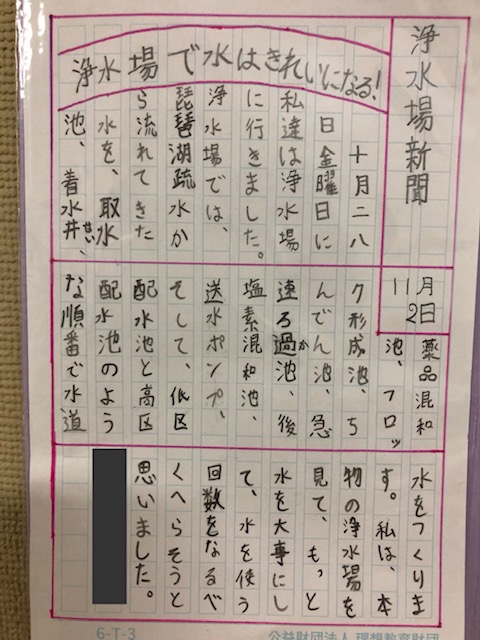 浄水場新聞
11月2日
浄水場で水はきれいになる!
十月二八
日金曜日に
私達は浄水場
に行きました。
浄水場では、
琵琶湖疏水か
ら流れてきた
水を、取水
池、着水井せい、
薬品混和
池、フロッ
ク形成池、ち
んでん池、急
速ろ過か池、後
塩素混和池、
送水ポンプ、
そして、低区
配水池と高区
配水池のよう
な順番で水道
水をつくりま
す。私は、本
物の浄水場を
見て、もっと
水を大事にし
て、水を使う
回数をなるべ
くへらそうと
思いました。
6-T-3
公益財団法人 理想教育財団